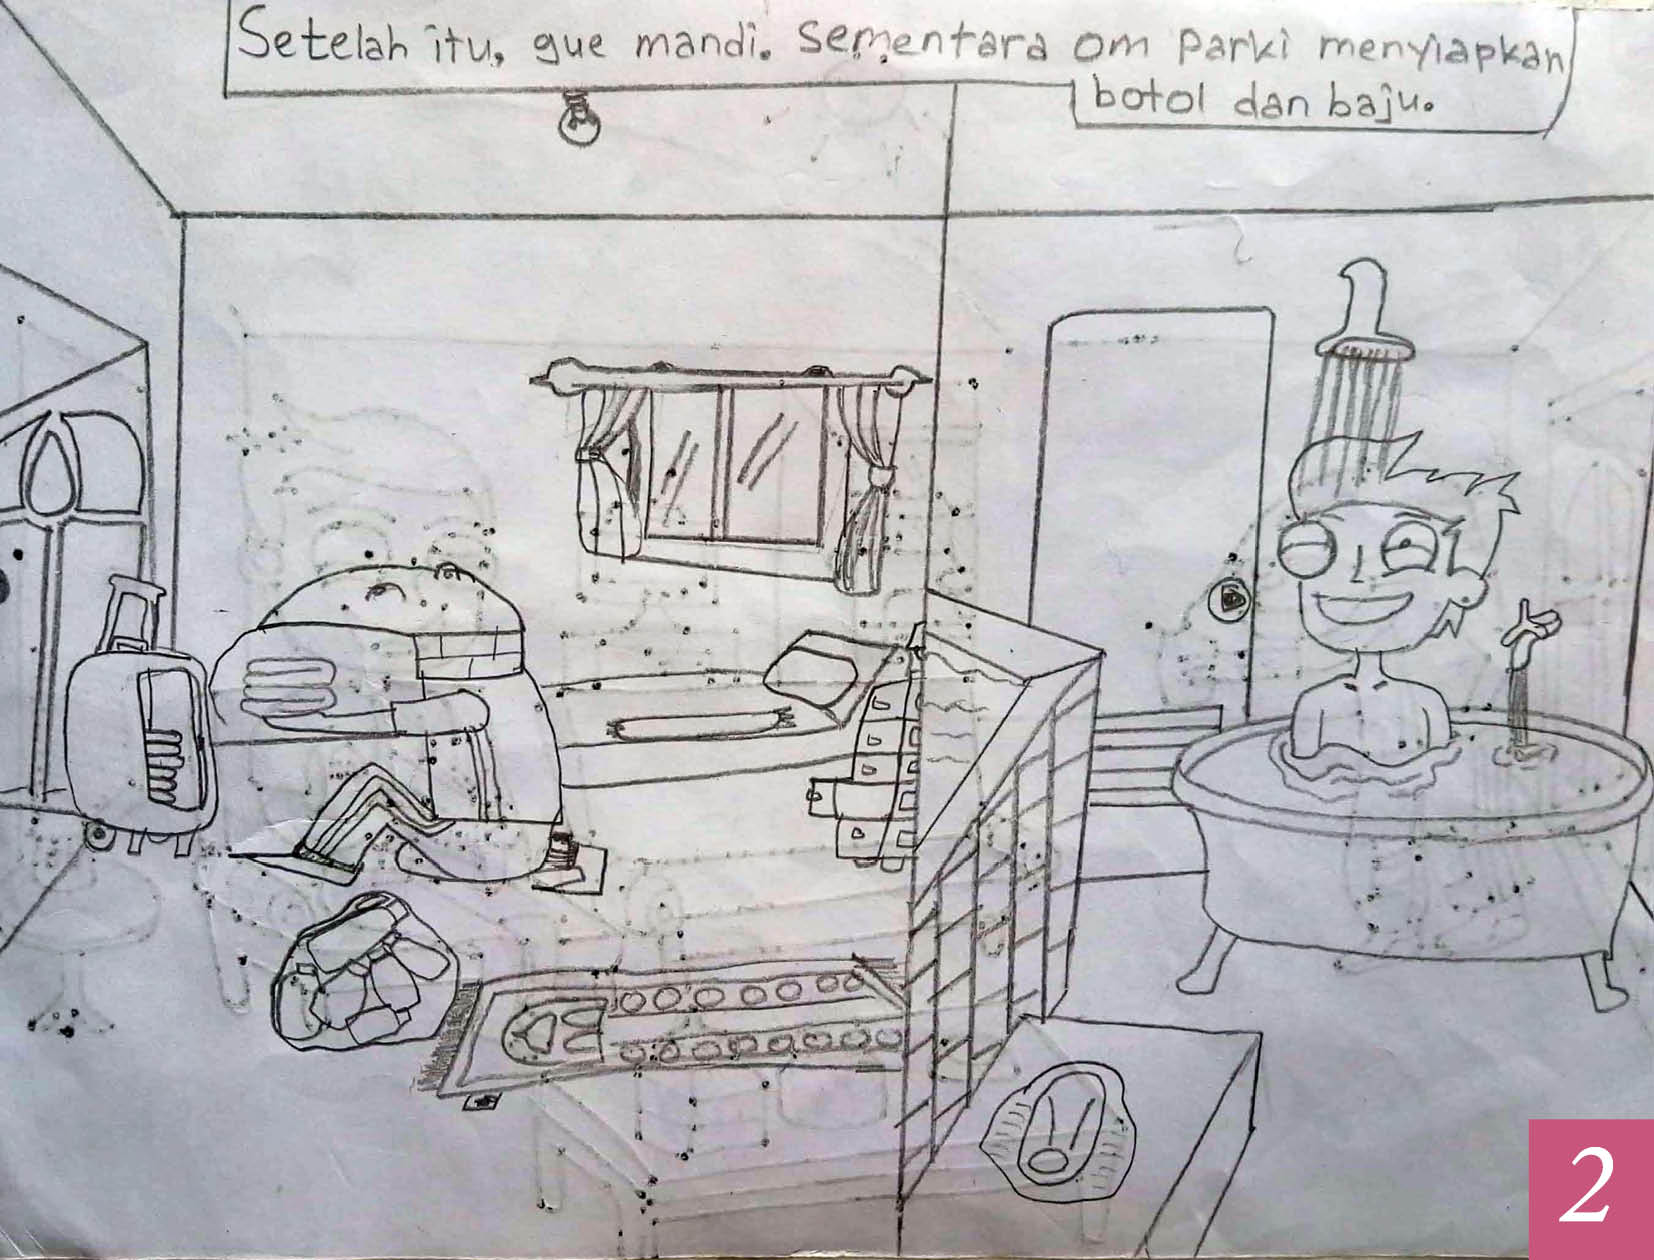 Setelah itu, gue mandi. Sementara om Parki menyiapkan
botol dan baju.
2